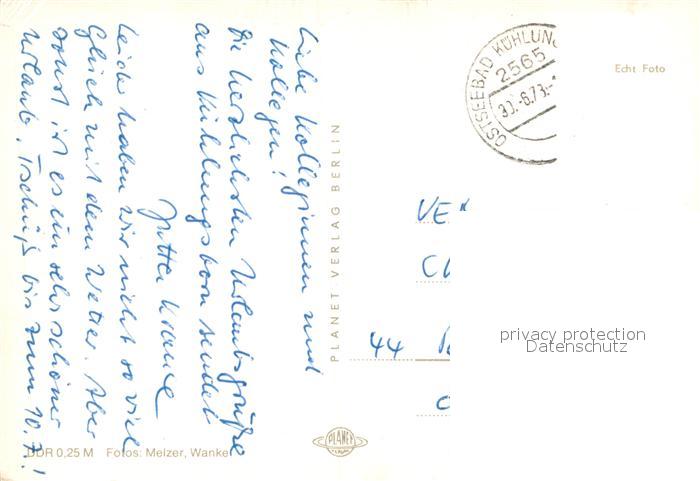 Liebe Kolleginnen und
Kollegen!
Die herzlichsten Urlaubsgrüße
aus Kühlungsborn sendet
Jutta
Leider haben wir nicht so viel
Glück mit dem Wetter. Aber
sonst ist es ein sehr schöner
Urlaub. Tschüß bis zum 10.7.!
PLANET-VERLAG BERLIN
PLANET
DDR 0,25 M Fotos: Melzer, Wanke
OSTSEEBAD KÜHLUN
2565
Echt Foto
VE
44
privacy protection
Datenschutz